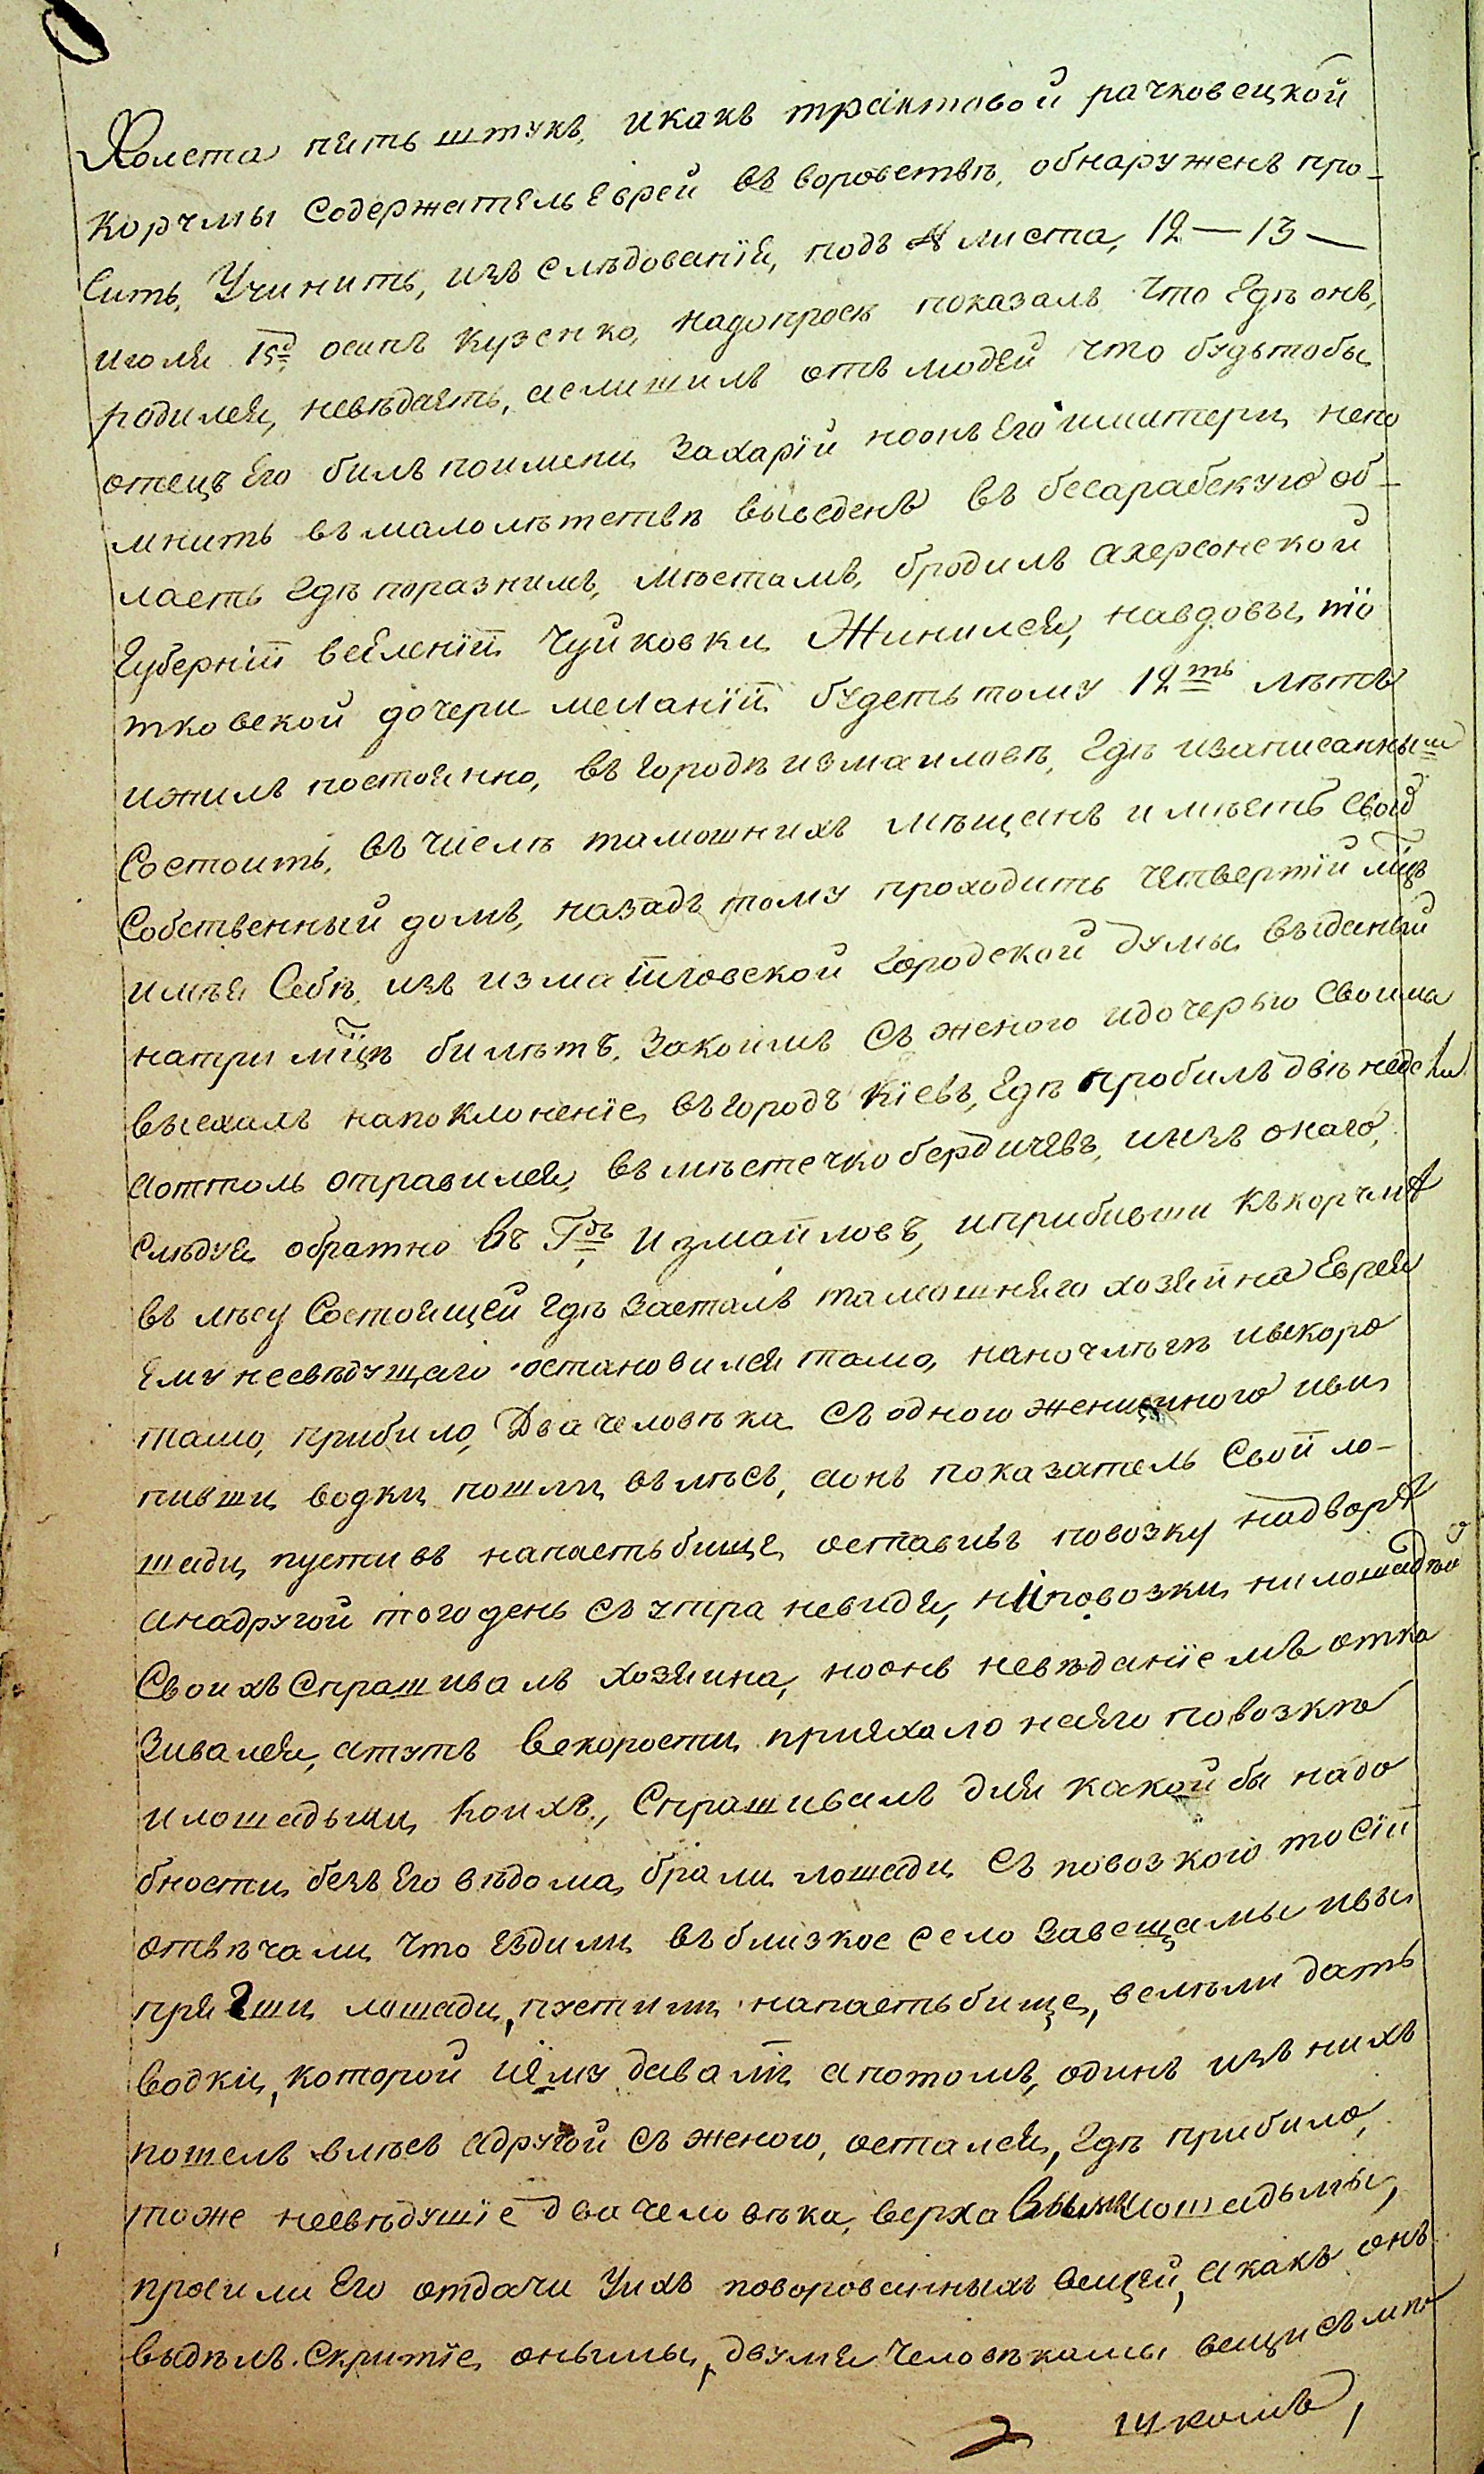 Холста пять штукъ, икакъ трактовой рачковецкой
корчмы Содержатель Еврей въ воровствѣ, обнаруженъ про-
Сить, Учинить, изъ слѣдованїя, подъ № листа, 12 — 13 —
июля 15д осипъ Кузенко, надопросѣ показалъ Что Гдѣ онъ,
родился, невѣдаетъ, аслишилъ отъ людей что будьтобы
отецъ Его билъ поимени Захарїй ноонъ Его иматери непо
мнитъ въ малолѣтствѣ выведенъ въ бесарабскую об-
ласть Гдѣ поразнимъ, мѣстамъ, бродилъ ахерсонской
Губернїи вселенїи Чуйковки Жинился, навдовы, тю
тковской дочери меланїи будетъ тому 12ть лѣтъ
ижилъ постоянно, въ городѣ измаиловѣ, Гдѣ изаписанным
Состоитъ, въ числѣ тамошнихъ мѣщанъ имѣетъ Свой
Собственный домъ, назадъ тому проходитъ четвертїй мїцъ
имѣя Себѣ, изъ измаиловской Городской думы выданый
натри мїцѣ билѣтъ, Закоимъ Съ женою идочерью Своима
выехалъ напоклоненїе въ городъ Кїевъ, Гдѣ пробилъ двѣ недели
аоттоль отправился, въ мѣстечко бердичевъ, иизъ онаго,
слѣдуя обратно въ Гдъ Измаиловъ, иприбивши Къкорчмѣ
въ лѣсу Состоящей Гдѣ Засталъ тамошняго хозяина Еврея
Ему несвѣдущаго остановился тамо, наночлѣгъ ивскоре
тамо, прибило, Два человѣка Съ одною женщиною иви
пивши водки пошли въ лѣсъ, аонъ показатель Свои ло-
шади пустивъ напастьбище, оставивъ повозку надворѣ
анадругой того день Съ утра невидя, ниповозки, нилошадѣй
Своихъ Спрашивалъ хозяина, ноонъ невѣданїемъ отка
зивался, атутъ вскорости приехало наего повозкѣ
илошадьми Коихъ, Спрашивалъ для какой бы надо
бности безъ Его вѣдома, брали лошади Съ повозкою тосїи
отвѣчали Что ездили въ близкое село Завещамы ивы
прягши лошади, пустили напастьбище, велѣли дать
водки, которой иему давали апотомъ, одинъ изъ нихъ
пошелъ влѣсъ адругой Съ женою, остался, Гдѣ прибило,
тоже несвѣдущїе два человѣка, верха выми лошадьмы,
просили Его отдачи Унхъ поворованныхъ вещей, акакъ онъ
выдѣлъ Скритїе, онымы, двумя Человѣкамы вещи съ мѣ
шкомъ,